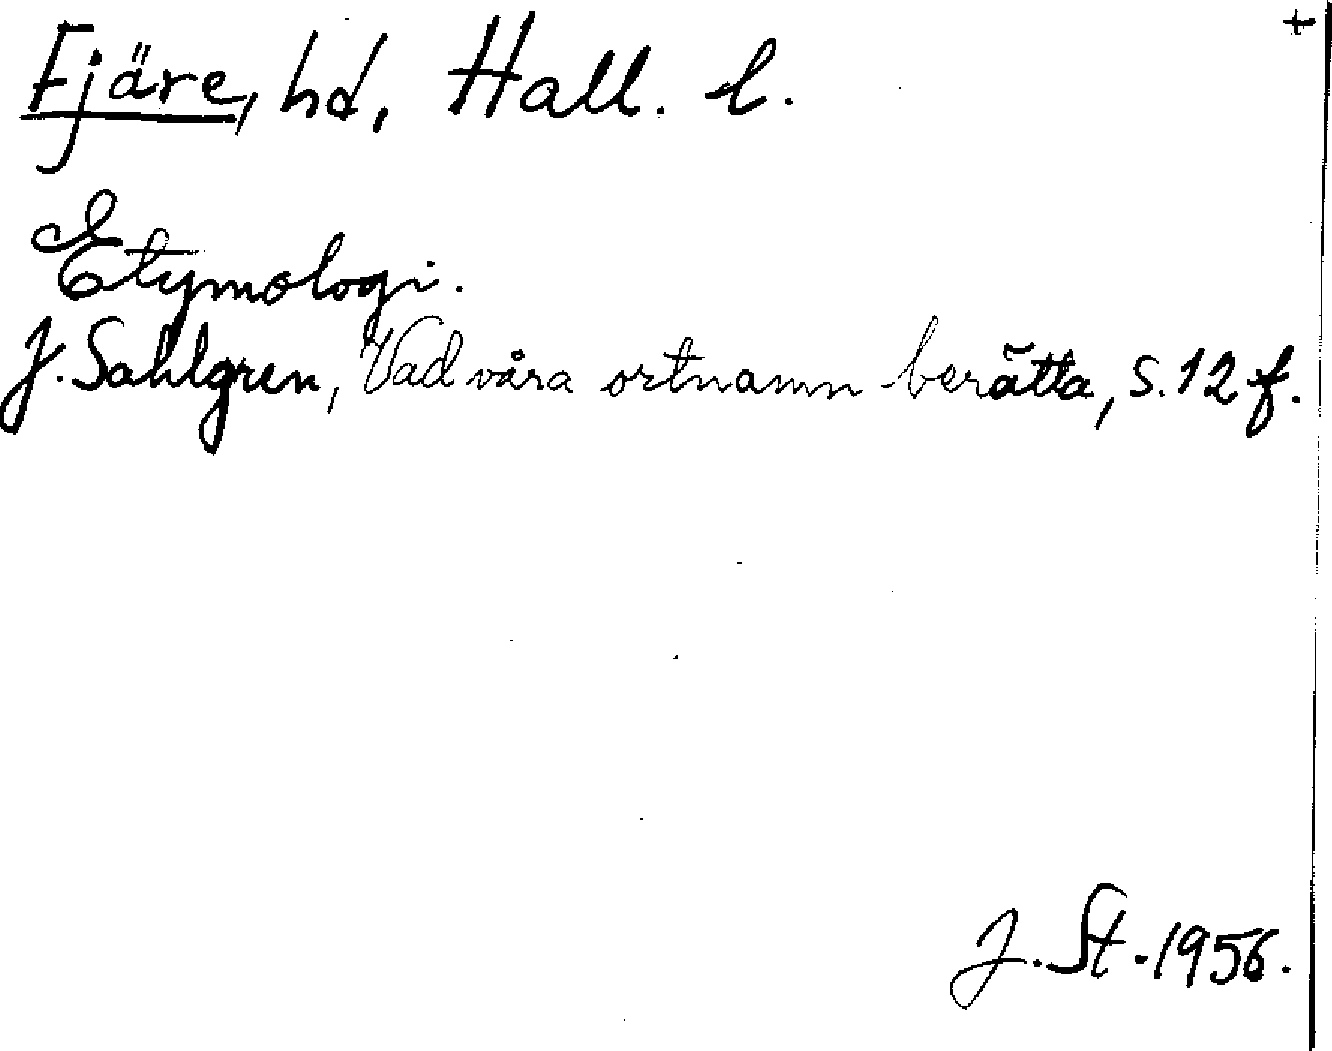 +
Fjäre, hd, Hall. l.
Etymologi.
J. Sahlgren, Vad våra ortnamn berätta, s. 12 f.
J. St. 1956.